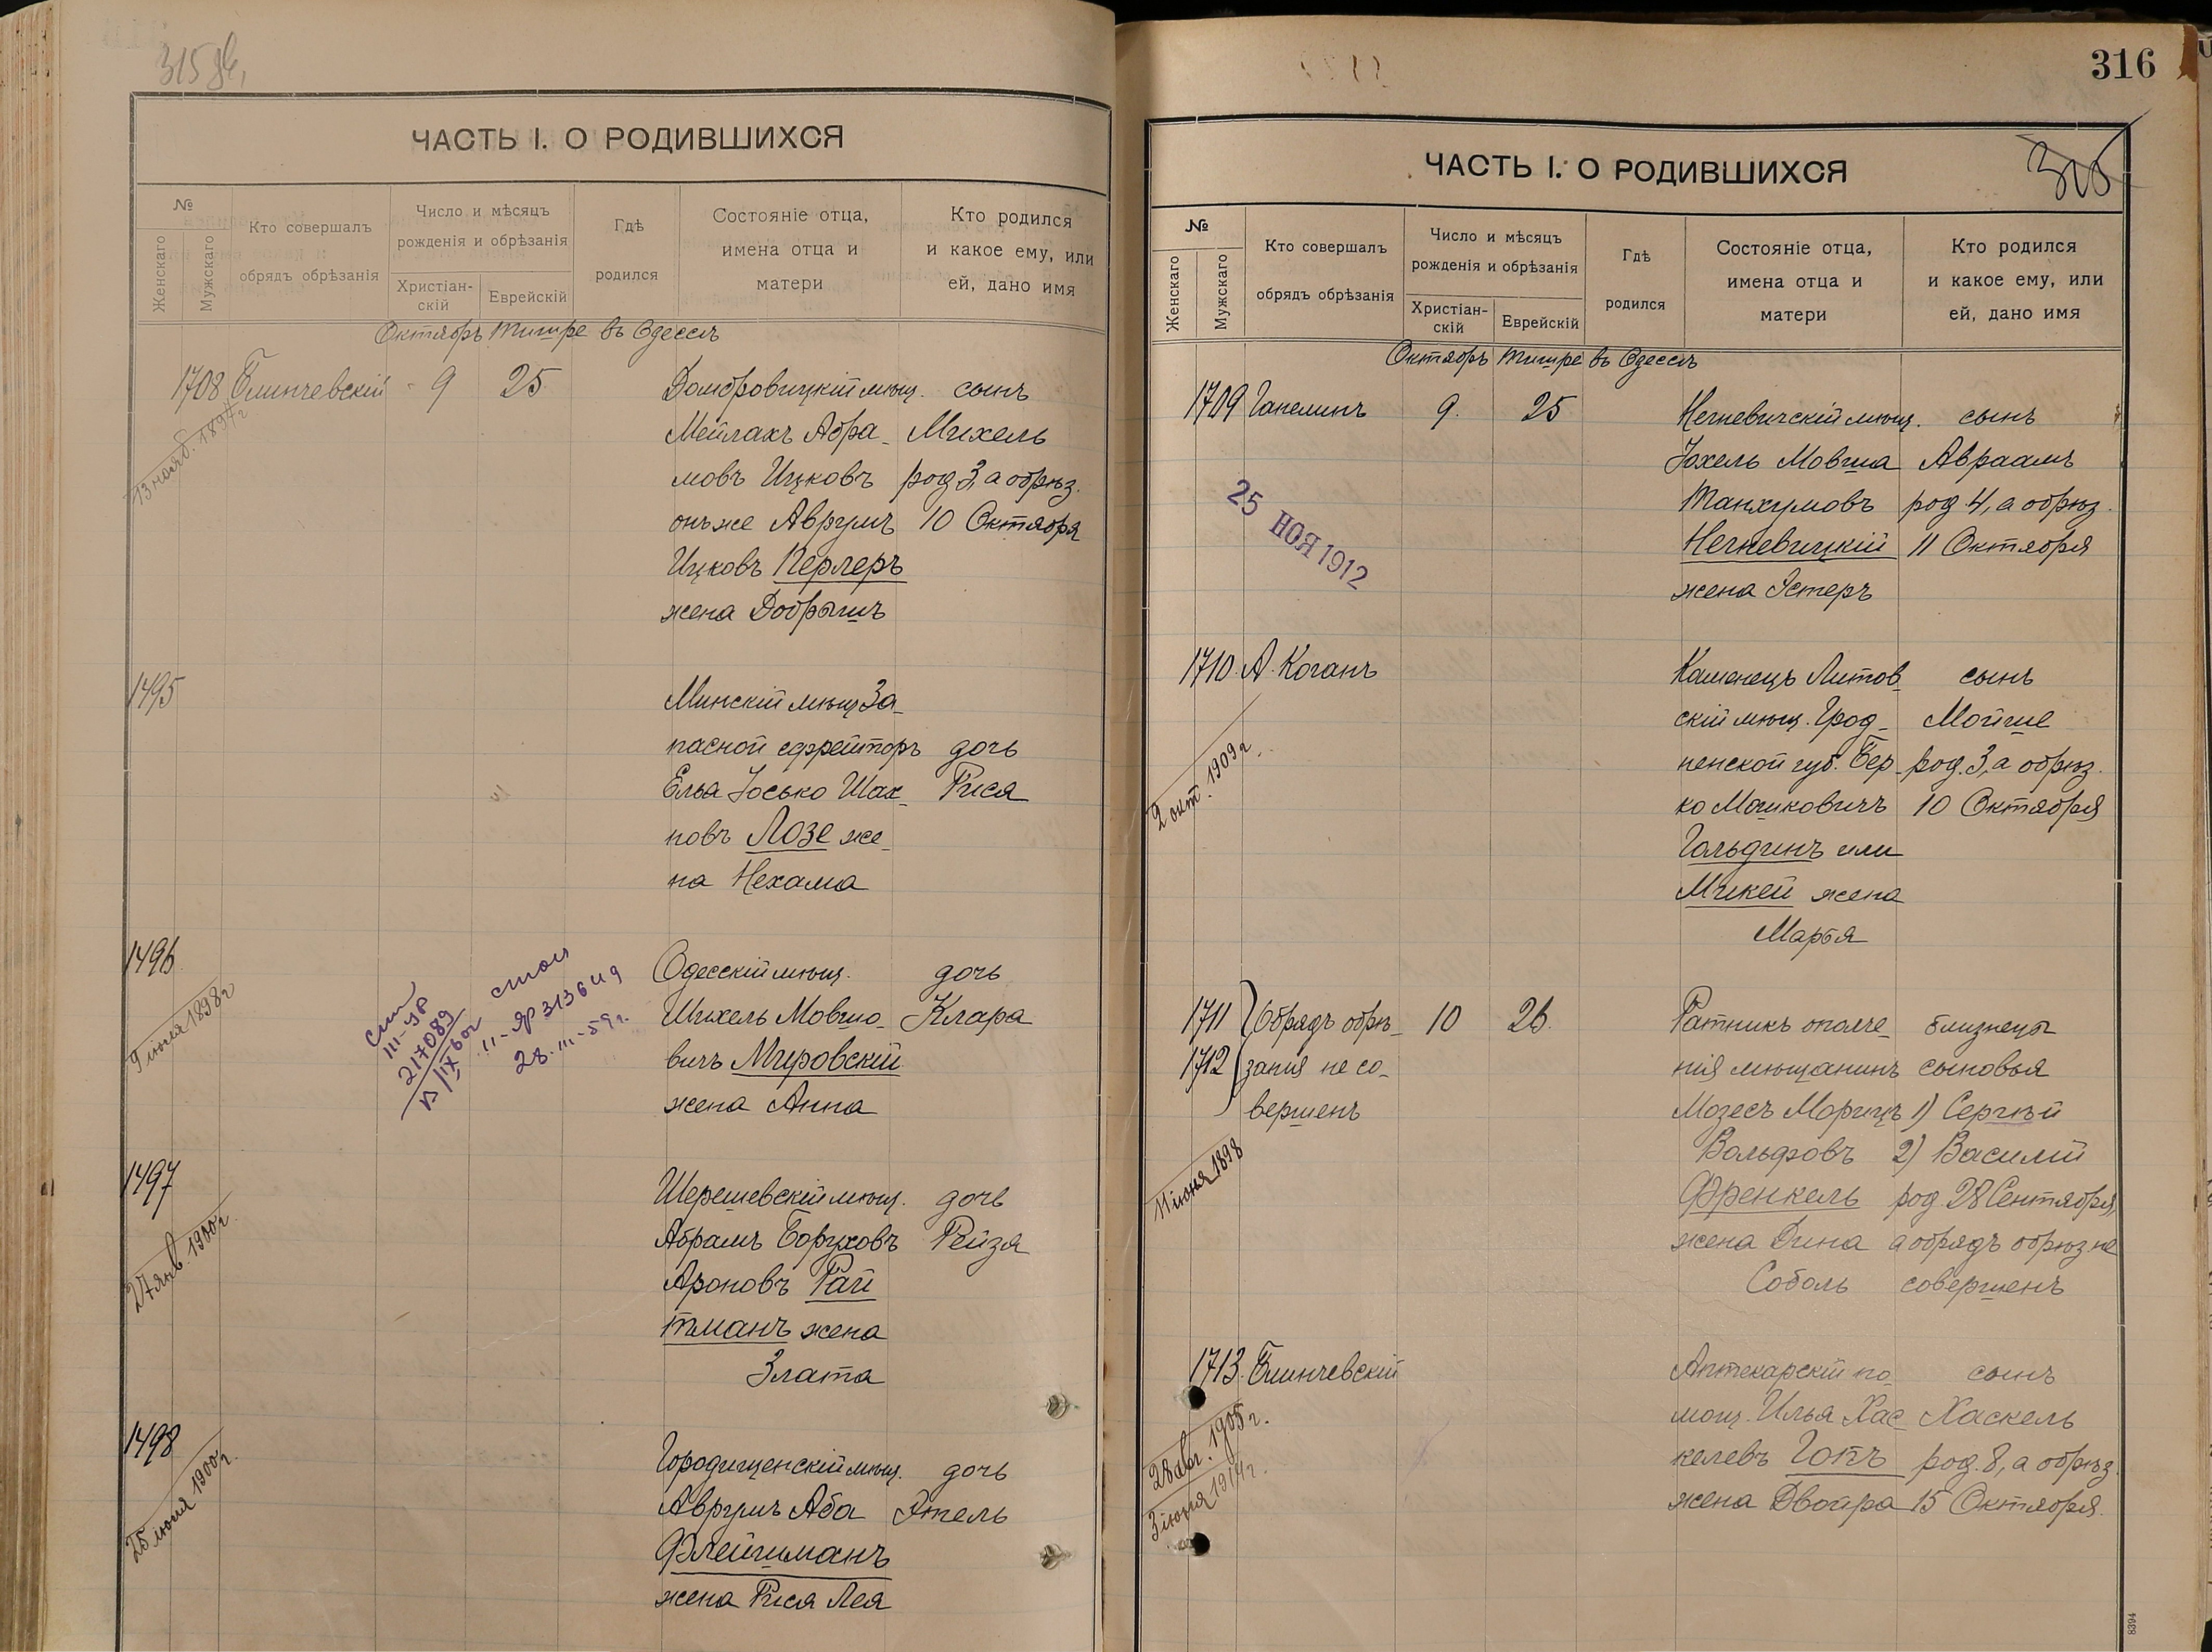 315 об,
ЧАСТЬ I. О РОДИВШИХСЯ
№
Женскаго
Мужскаго
Кто совершалъ
обрядъ обрѣзанія
Число и мѣсяцъ
рожденія и обрѣзанія
Христіан-
скій
Еврейскій
Гдѣ
родился
Состояніе отца,
имена отца и
матери
Кто родился
и какое ему, или
ей, дано имя
Октябрь Тишре въ Одессѣ
1708 Блинчевскій 9 25 Домбровицкій мѣщ. сынъ
13 нояб. 1897 г
Мейлахъ Абра- Михель
мовъ Ицковъ род 3, а обрѣз.
онъ же Аврумъ 10 Октября
Ицковъ Перлеръ
жена Добрышъ
1495
Минскій мѣщ За-
пасной ефрейторъ дочь
Ельа Іосько Шах- Рися
новъ Лозе же-
на Нехама
1496
9 іюня 1898 г
III-УР
217089
II-ЯР 313649
28.III-59 г.
Одесскій мѣщ. дочь
Шихель Мовшо- Клара
вичъ Мировскій
жена Анна
1497
27 янв. 1900 г.
Шерешевскій мѣщ. дочь
Абрамъ Боруховъ Рейзя
Ароновъ Рай
тманъ жена
Злата
1498
25 іюня 1900 г.
Городищенскій мѣщ. дочь
Аврумъ Аба Этель
Флейшманъ
жена Рися Лея
316
315
ЧАСТЬ I. О РОДИВШИХСЯ
№
Женскаго
Мужскаго
Кто совершалъ
обрядъ обрѣзанія
Число и мѣсяцъ
рожденія и обрѣзанія
Христіан-
скій
Еврейскій
Гдѣ
родился
Состояніе отца,
имена отца и
матери
Кто родился
и какое ему, или
ей, дано имя
Октябрь Тишре въ Одессѣ
1709 Гапелинъ 9. 25 Негневичскій мѣщ. сынъ
Іохель Мовша Авраамъ
Танхумовъ род 4, а обрѣз.
Негневицкій 11 Октября
жена Эстеръ
25 НОЯ 1912
1710. А. Коганъ Каменецъ Литов- сынъ
скій мѣщ. Грод- Мойше
ненской губ. Бер- род. 3, а обрѣз.
ко Мошковичъ 10 Октября
Гольдинъ или
Микей жена
Марья
2 окт. 1909 г.
1711 Обрядъ обрѣ- 10 26. Ратникъ ополче- близнецы
1712 занія не со- нія мѣщанинъ сыновья
вершенъ Мозесъ Морицъ 1) Сергѣй
Вольфовъ 2) Василій
Френкель род 28 Сентября,
жена Дина а обрядъ обрѣз. не
Соболь совершенъ
11 іюня 1898
1713. Блинчевскій Аптекарскій по- сынъ
мощ. Илья Хас- Хаскель
келевъ Гопъ род. 8, а обрѣз.
жена Двойра 15 Октября.
28 авг. 1905 г.
3 іюня 1914 г.
8394